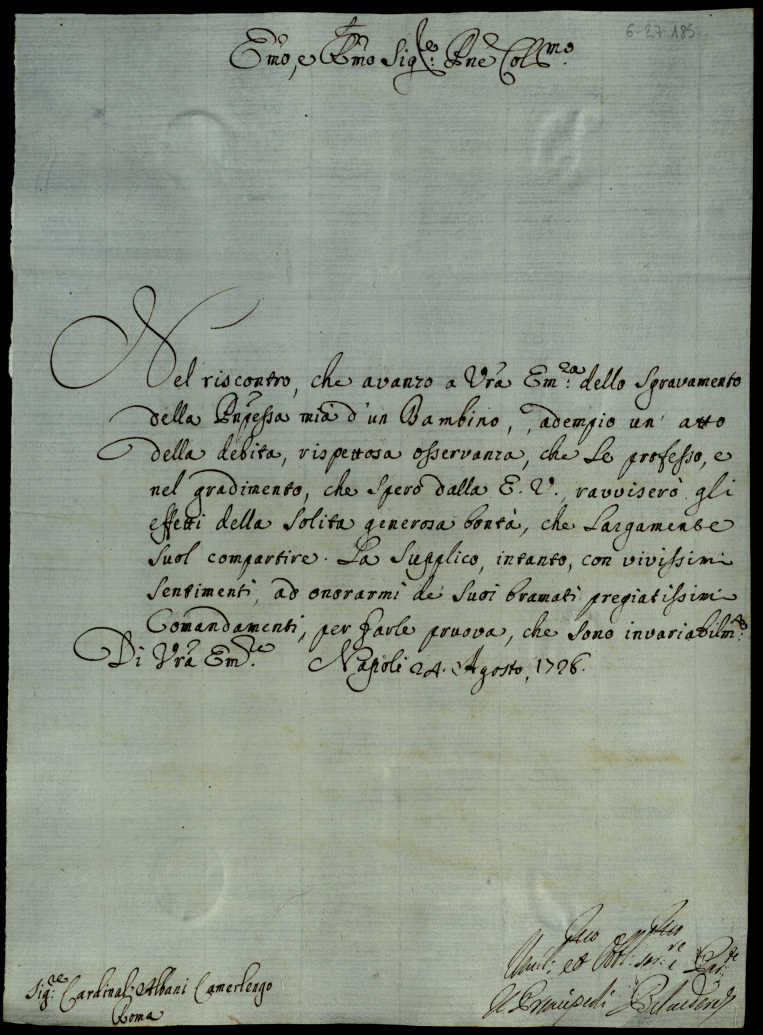 6-27.185
Emo, e Rmo Sigre: Pne Collmo.
Nel riscontro, che avanzo a Vrã Emza: dello sgravamento
della Pnpessa mia d'un Bambino, adempio un' atto
della debita, rispettosa osservanza, che Le professo, e
nel gradimento, che spero dalla E. V., ravviserò gli
effetti della solita generosa bontà, che Largamente
suol compartire. La supplico, intanto, con vivissimi
sentimenti, ad onorarmi de' suoi bramati pregiatissimi
Comandamenti, per farle pruova, che sono invariabilmte:
Di Vrã Emze: Napoli 24. Agosto, 1726.
Umil: et Obl: serre
Il Principe di
Sigre: Cardinal: Albani Camerlengo
Roma